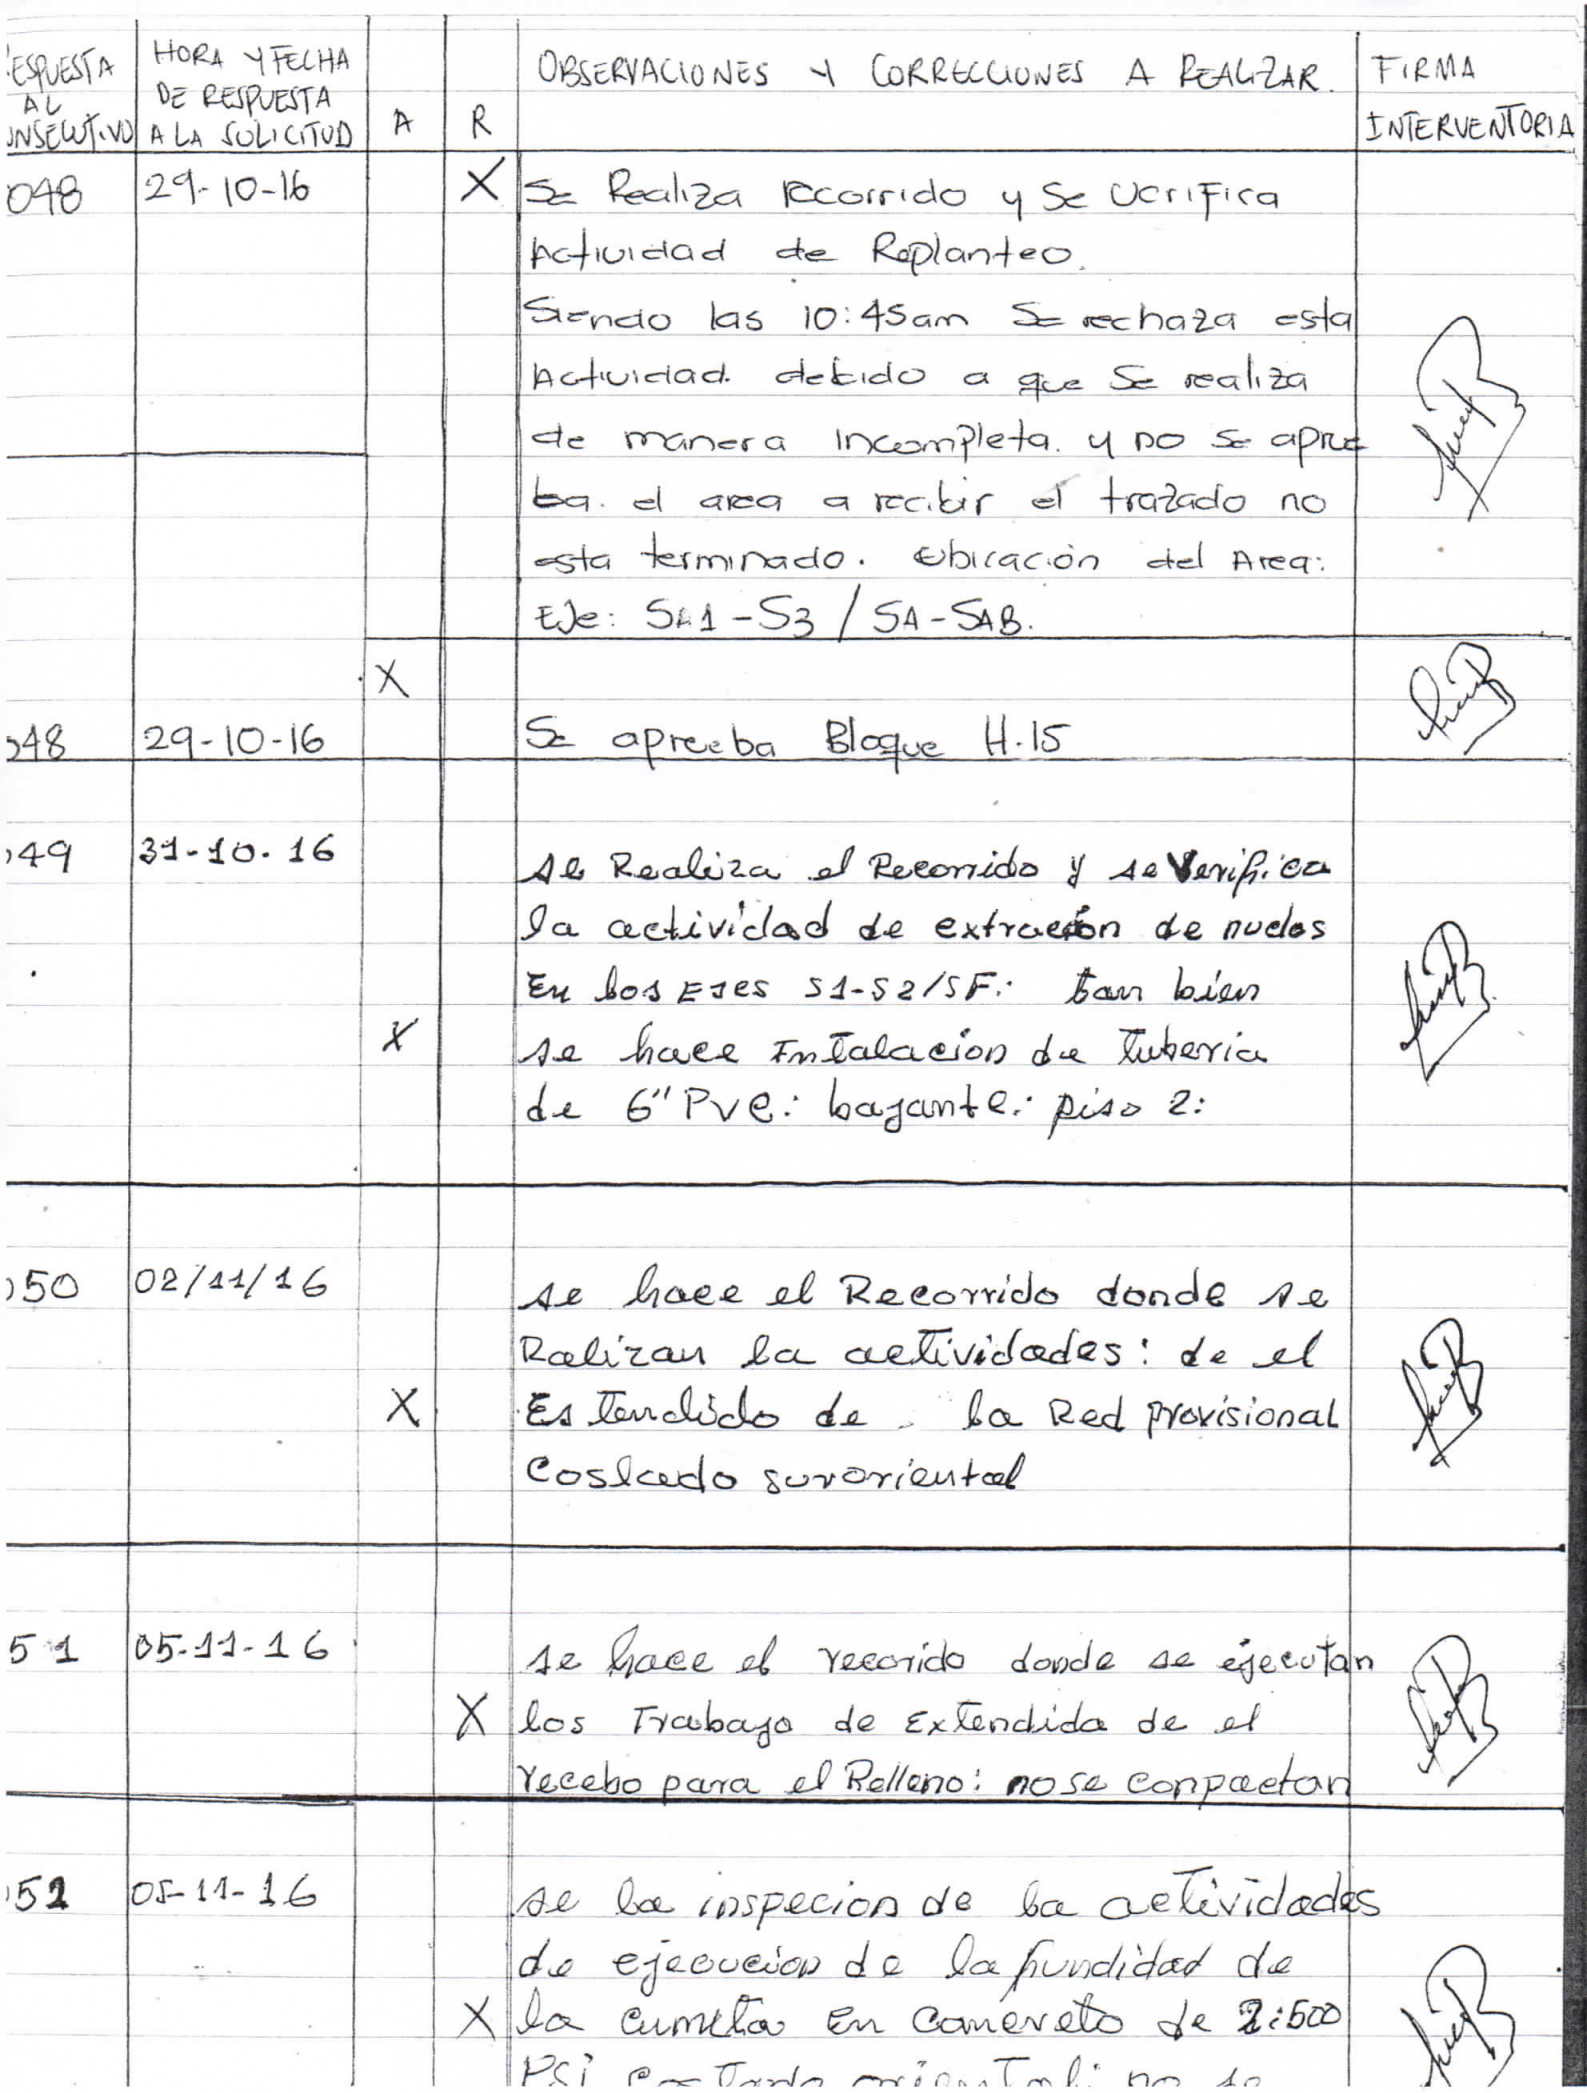 ESPUESTA AL ONSECUTIVO HORA Y FECHA DE RESPUESTA A LA SOLICITUD A R OBSERVACIONES Y CORRECCIONES A REALIZAR. FIRMA INTERVENTORIA
048 29-10-16 X Se Realiza recorrido y Se Verifica
Actividad de Replanteo.
Siendo las 10:45am Se rechaza esta
Actividad. debido a que Se realiza
de manera incompleta. y no se aprue
ba. el area a recibir el trazado no
esta terminado. Ubicación del Area:
EJe: SA1-S3 / SA-SAB.
X
048 29-10-16 Se aprueba Bloque H.15
049 31-10-16 se Realiza el Recorrido y se Verifica
la actividad de extracion de nucleos
En los EJes S1-S2/SF: tan bien
X se hace Intalacion de Tuberia
de 6" Pvc: bajante: piso 2:
050 02/11/16 se hace el Recorrido donde se
Ralizan la actividades: de el
X Es Tendido de la Red Provisional
Coslado suroriental
51 05-11-16 se hace el recorido donde se ejecutan
X los Trabajo de ExTendida de el
recebo para el Relleno: no se conpactan
052 05-11-16 se la inspecion de la actividades
de ejecucion de la fundidad de
X la cuneta En concreto de 2:500
PSi costado oriental: no se